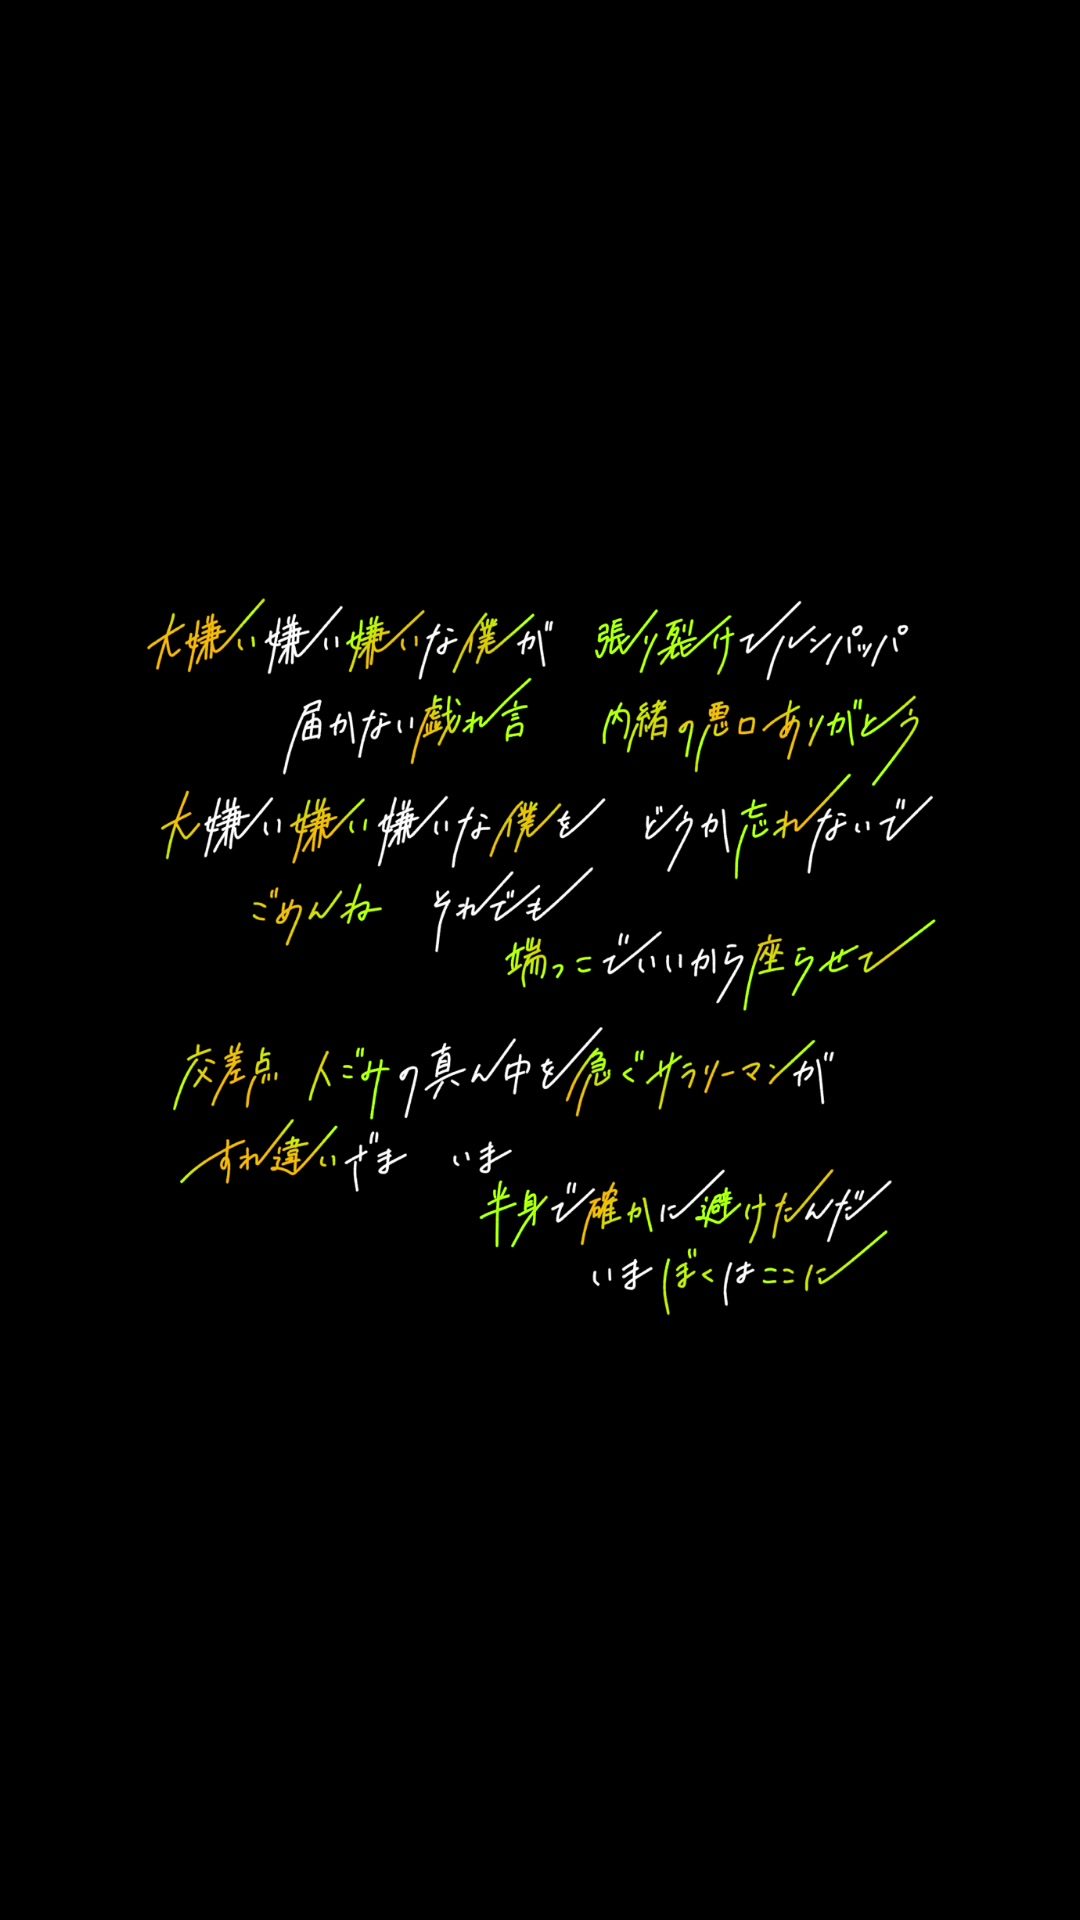 大嫌い嫌い嫌いな僕が　張り裂けてルンパッパ
届かない戯れ言　内緒の悪口ありがとう
大嫌い嫌い嫌いな僕を　どうか忘れないで
ごめんね　それでも
端っこでいいから座らせて
交差点　人ごみの真ん中を急ぐサラリーマンが
すれ違いざま　いま
半身で確かに避けたんだ
いまぼくはここに